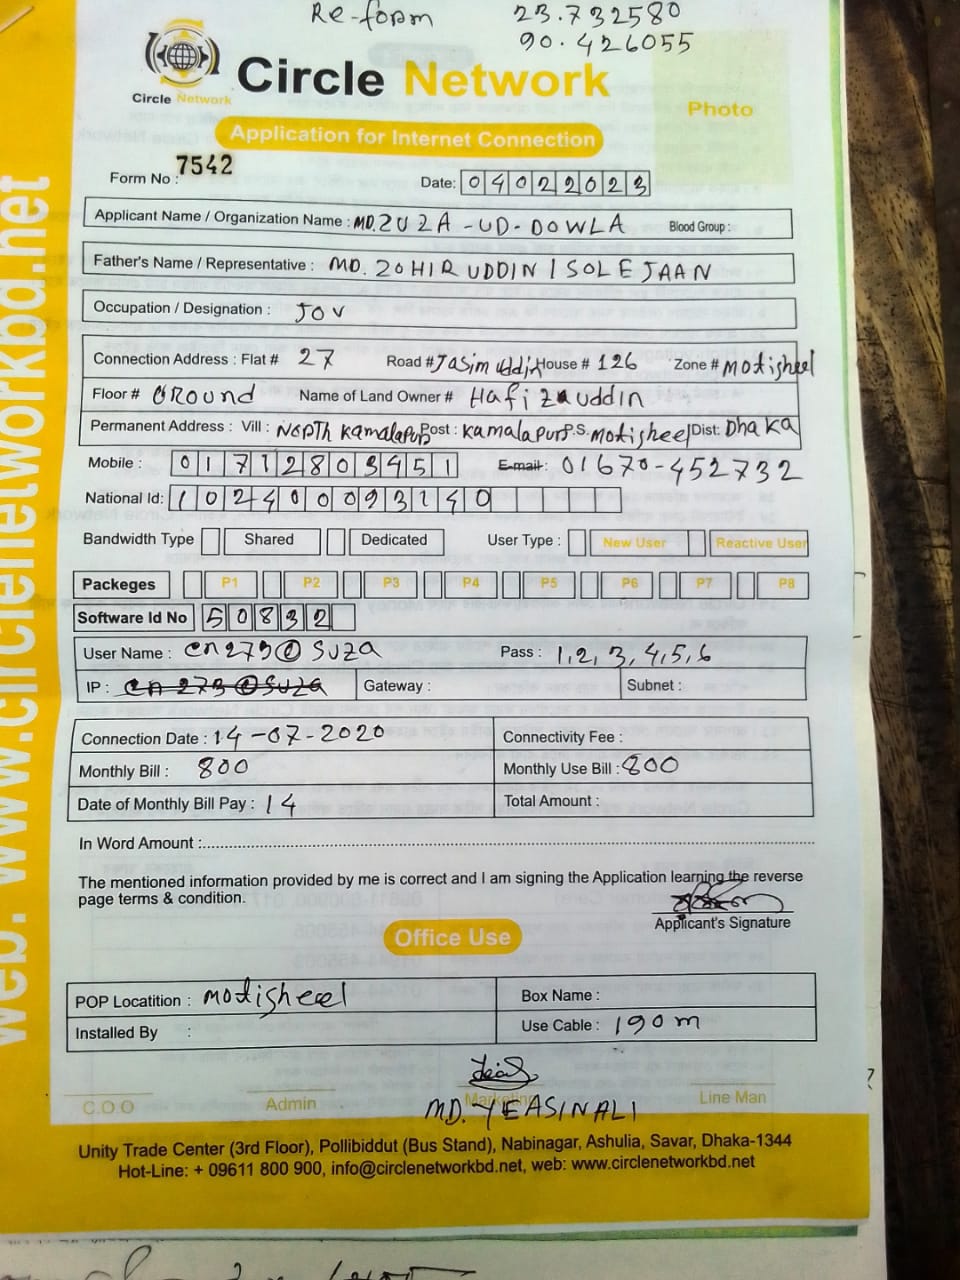 Re-form 23.732580
90.426055
Circle Network
Circle Network
Photo
Application for Internet Connection
Form No : 7542
Date: 04022023
Applicant Name / Organization Name : MD. ZUZA-UD-DOWLA Blood Group :
Father's Name / Representative : MD. ZOHIR UDDIN / SOLEJAAN
Occupation / Designation : JOV
Connection Address : Flat # 27 Road # Jasim uddin House # 126 Zone # motisheel
Floor # GROUND Name of Land Owner # Hafiz uddin
Permanent Address : Vill : NORTH Kamalapur Post : Kamalapur P.S. motisheel Dist: Dhaka
Mobile : 01712803451 E-mail: 01670-452732
National Id: 102400093140
Bandwidth Type Shared Dedicated User Type : New User Reactive User
Packeges P1 P2 P3 P4 P5 P6 P7 P8
Software Id No 50832
User Name : cn279@suza Pass : 1,2,3,4,5,6
IP : cn 279 @suza Gateway : Subnet :
Connection Date : 14-07-2020 Connectivity Fee :
Monthly Bill : 800 Monthly Use Bill : 800
Date of Monthly Bill Pay : 14 Total Amount :
In Word Amount :
The mentioned information provided by me is correct and I am signing the Application learning the reverse
page terms & condition.
Applicant's Signature
Office Use
POP Locatition : motisheel Box Name :
Installed By : Use Cable : 190m
C.O.O Admin Marketing Line Man
MD. YEASIN ALI
Unity Trade Center (3rd Floor), Pollibiddut (Bus Stand), Nabinagar, Ashulia, Savar, Dhaka-1344
Hot-Line: + 09611 800 900, info@circlenetworkbd.net, web: www.circlenetworkbd.net
web: www.circlenetworkbd.net